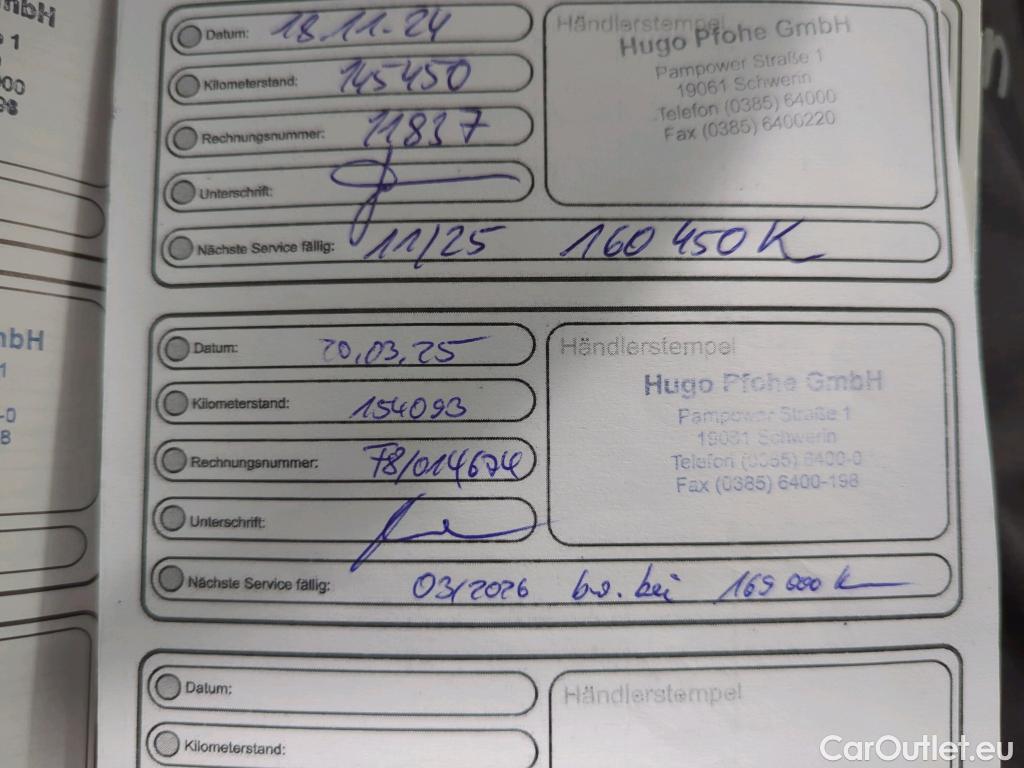 mbH
1
Datum: 18.11.24
Kilometerstand: 145450
Rechnungsnummer: 11837
Unterschrift:
Nächste Service fällig: 11/25 160 450 K
Händlerstempel
Hugo Pfohe GmbH
Pampower Straße 1
19061 Schwerin
Telefon (0385) 64000
Fax (0385) 6400220
mbH
1
-0
8
Datum: 20.03.25
Kilometerstand: 154093
Rechnungsnummer: 78/014674
Unterschrift:
Nächste Service fällig: 03/2026 bei 169 000 k
Händlerstempel
Hugo Pfohe GmbH
Pampower Straße 1
19061 Schwerin
Telefon (0385) 6400-0
Fax (0385) 6400-198
Datum:
Kilometerstand:
Händlerstempel
CarOutlet.eu